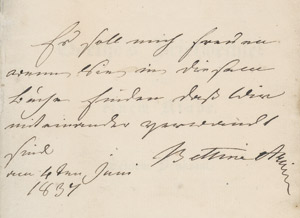 Es soll mich freuen
wenn Sie in diesem
Buche finden daß wir
miteinander verwandt
sind
am 4ten Juni Bettine Arnim
1837